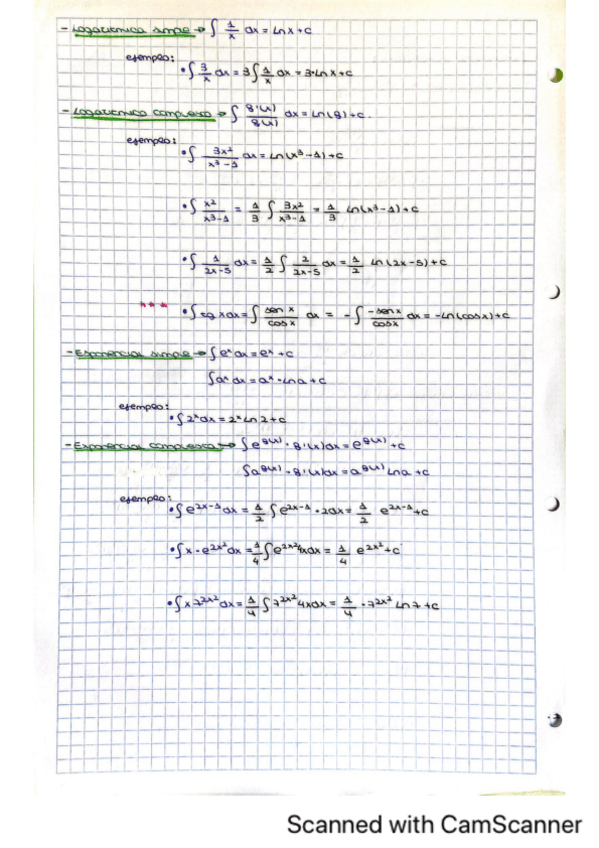 - Logarítmica simple → ∫ 1/x dx = Ln x + c
ejemplo:
• ∫ 3/x dx = 3 ∫ 1/x dx = 3·Ln x + c
- Logarítmico complexo → ∫ g'(x)/g(x) dx = Ln(g) + c.
ejemplo:
• ∫ 3x²/(x³-1) dx = Ln(x³-1) + c
• ∫ x²/(x³-1) = 1/3 ∫ 3x²/(x³-1) = 1/3 Ln(x³-1) + c
• ∫ 1/(2x-5) dx = 1/2 ∫ 2/(2x-5) dx = 1/2 Ln(2x-5) + c
*** • ∫ tg x dx = ∫ sen x/cos x dx = - ∫ -sen x/cos x dx = -Ln(cos x) + c
- Exponencial simple → ∫ eˣ dx = eˣ + c
∫ aˣ dx = aˣ · Ln a + c
ejemplo:
• ∫ 2ˣ dx = 2ˣ Ln 2 + c
- Exponencial complexa → ∫ e^g(x) · g'(x) dx = e^g(x) + c
∫ a^g(x) · g'(x) dx = a^g(x) Ln a + c
ejemplo:
• ∫ e^(2x-1) dx = 1/2 ∫ e^(2x-1) · 2dx = 1/2 e^(2x-1) + c
• ∫ x · e^(2x²) dx = 1/4 ∫ e^(2x²) 4x dx = 1/4 e^(2x²) + c
• ∫ x 7^(2x²) dx = 1/4 ∫ 7^(2x²) 4x dx = 1/4 · 7^(2x²) Ln 7 + c
Scanned with CamScanner